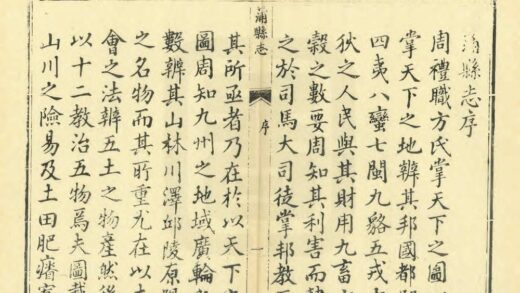 蒲縣志序
周禮職方氏掌天下之圖
掌天下之地辨其邦國都
四夷八蠻七閩九貉五戎
狄之人民與其財用九畜
穀之數要周知其利害而
之於司馬大司徒掌邦教
蒲縣志
序
一
其所亟者乃在於以天下
圖周知九州之地域廣輪
數辨其山林川澤邱陵原
之名物而其所重尤在以土
會之法辨五土之物產然後
以十二教治五物焉夫圖載
山川之險易及土田肥瘠